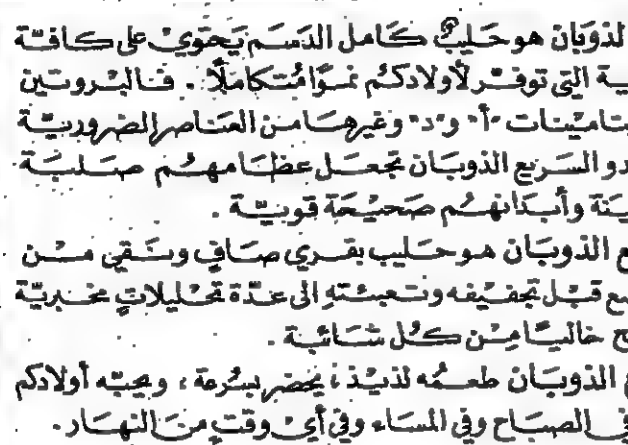 الذوبان هو حليب كامل الدسم يحتوي على كافة
ية التي توفر لأولادكم نموًا متكاملًا . فالبروتين
يتامينات "أ" و"د" وغيرها من العناصر الضرورية
دو السريع الذوبان تجعل عظامهم صلبة
ينة وأبدانهم صحيحة قوية .
ع الذوبان هو حليب بقري صافٍ ونقي من
ضع قبل تجفيفه وتعبئته الى عدّة تحليلاتٍ مخبريّة
ح خاليًا من كل شائبة .
ع الذوبان طعمُه لذيذ ، يحضر بسُرعة ، ويحبّه أولادكم
في الصباح وفي المساء وفي أي وقتٍ من النهار .